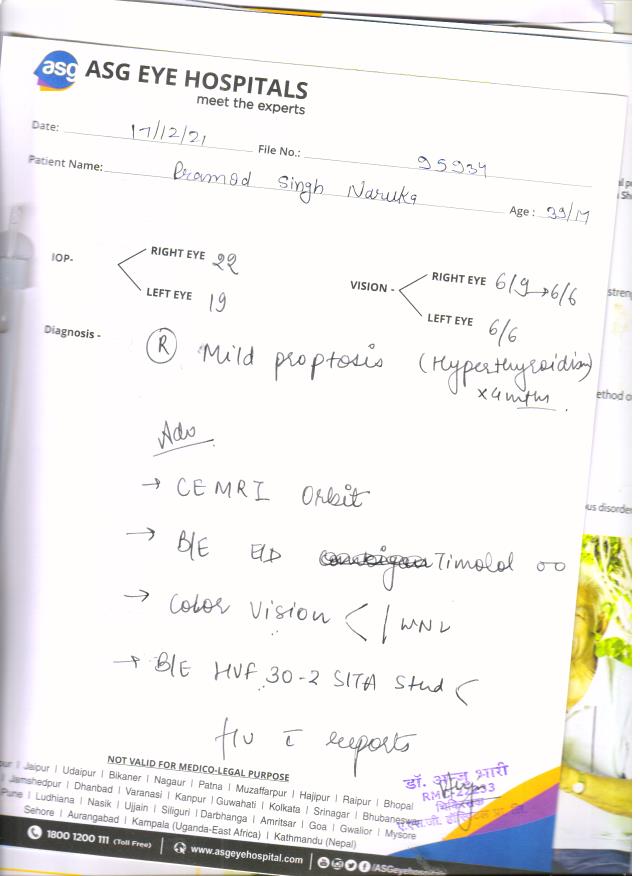 asg ASG EYE HOSPITALS
meet the experts
Date: 17/12/21 File No.: 95934
Patient Name: Pramod Singh Naruka Age: 39/M
IOP- RIGHT EYE 22
LEFT EYE 19
VISION - RIGHT EYE 6/9 → 6/6
LEFT EYE 6/6
Diagnosis - (R) Mild proptosis (Hyperthyroidism)
x 4 mths.
Adv
→ CEMRI Orbit
→ B/E E/D Timolol oo
→ Color Vision < / WNL
→ B/E HVF 30-2 SITA Stnd <
f/u c reports
NOT VALID FOR MEDICO-LEGAL PURPOSE
Jaipur | Udaipur | Bikaner | Nagaur | Patna | Muzaffarpur | Hajipur | Raipur | Bhopal
Jamshedpur | Dhanbad | Varanasi | Kanpur | Guwahati | Kolkata | Srinagar | Bhubaneswar
Pune | Ludhiana | Nasik | Ujjain | Siliguri | Darbhanga | Amritsar | Goa | Gwalior | Mysore
Sehore | Aurangabad | Kampala (Uganda-East Africa) | Kathmandu (Nepal)
डॉ.
RM
1800 1200 111 (Toll Free) | www.asgeyehospital.com | /ASGeyehospital
ethod o
us disorder